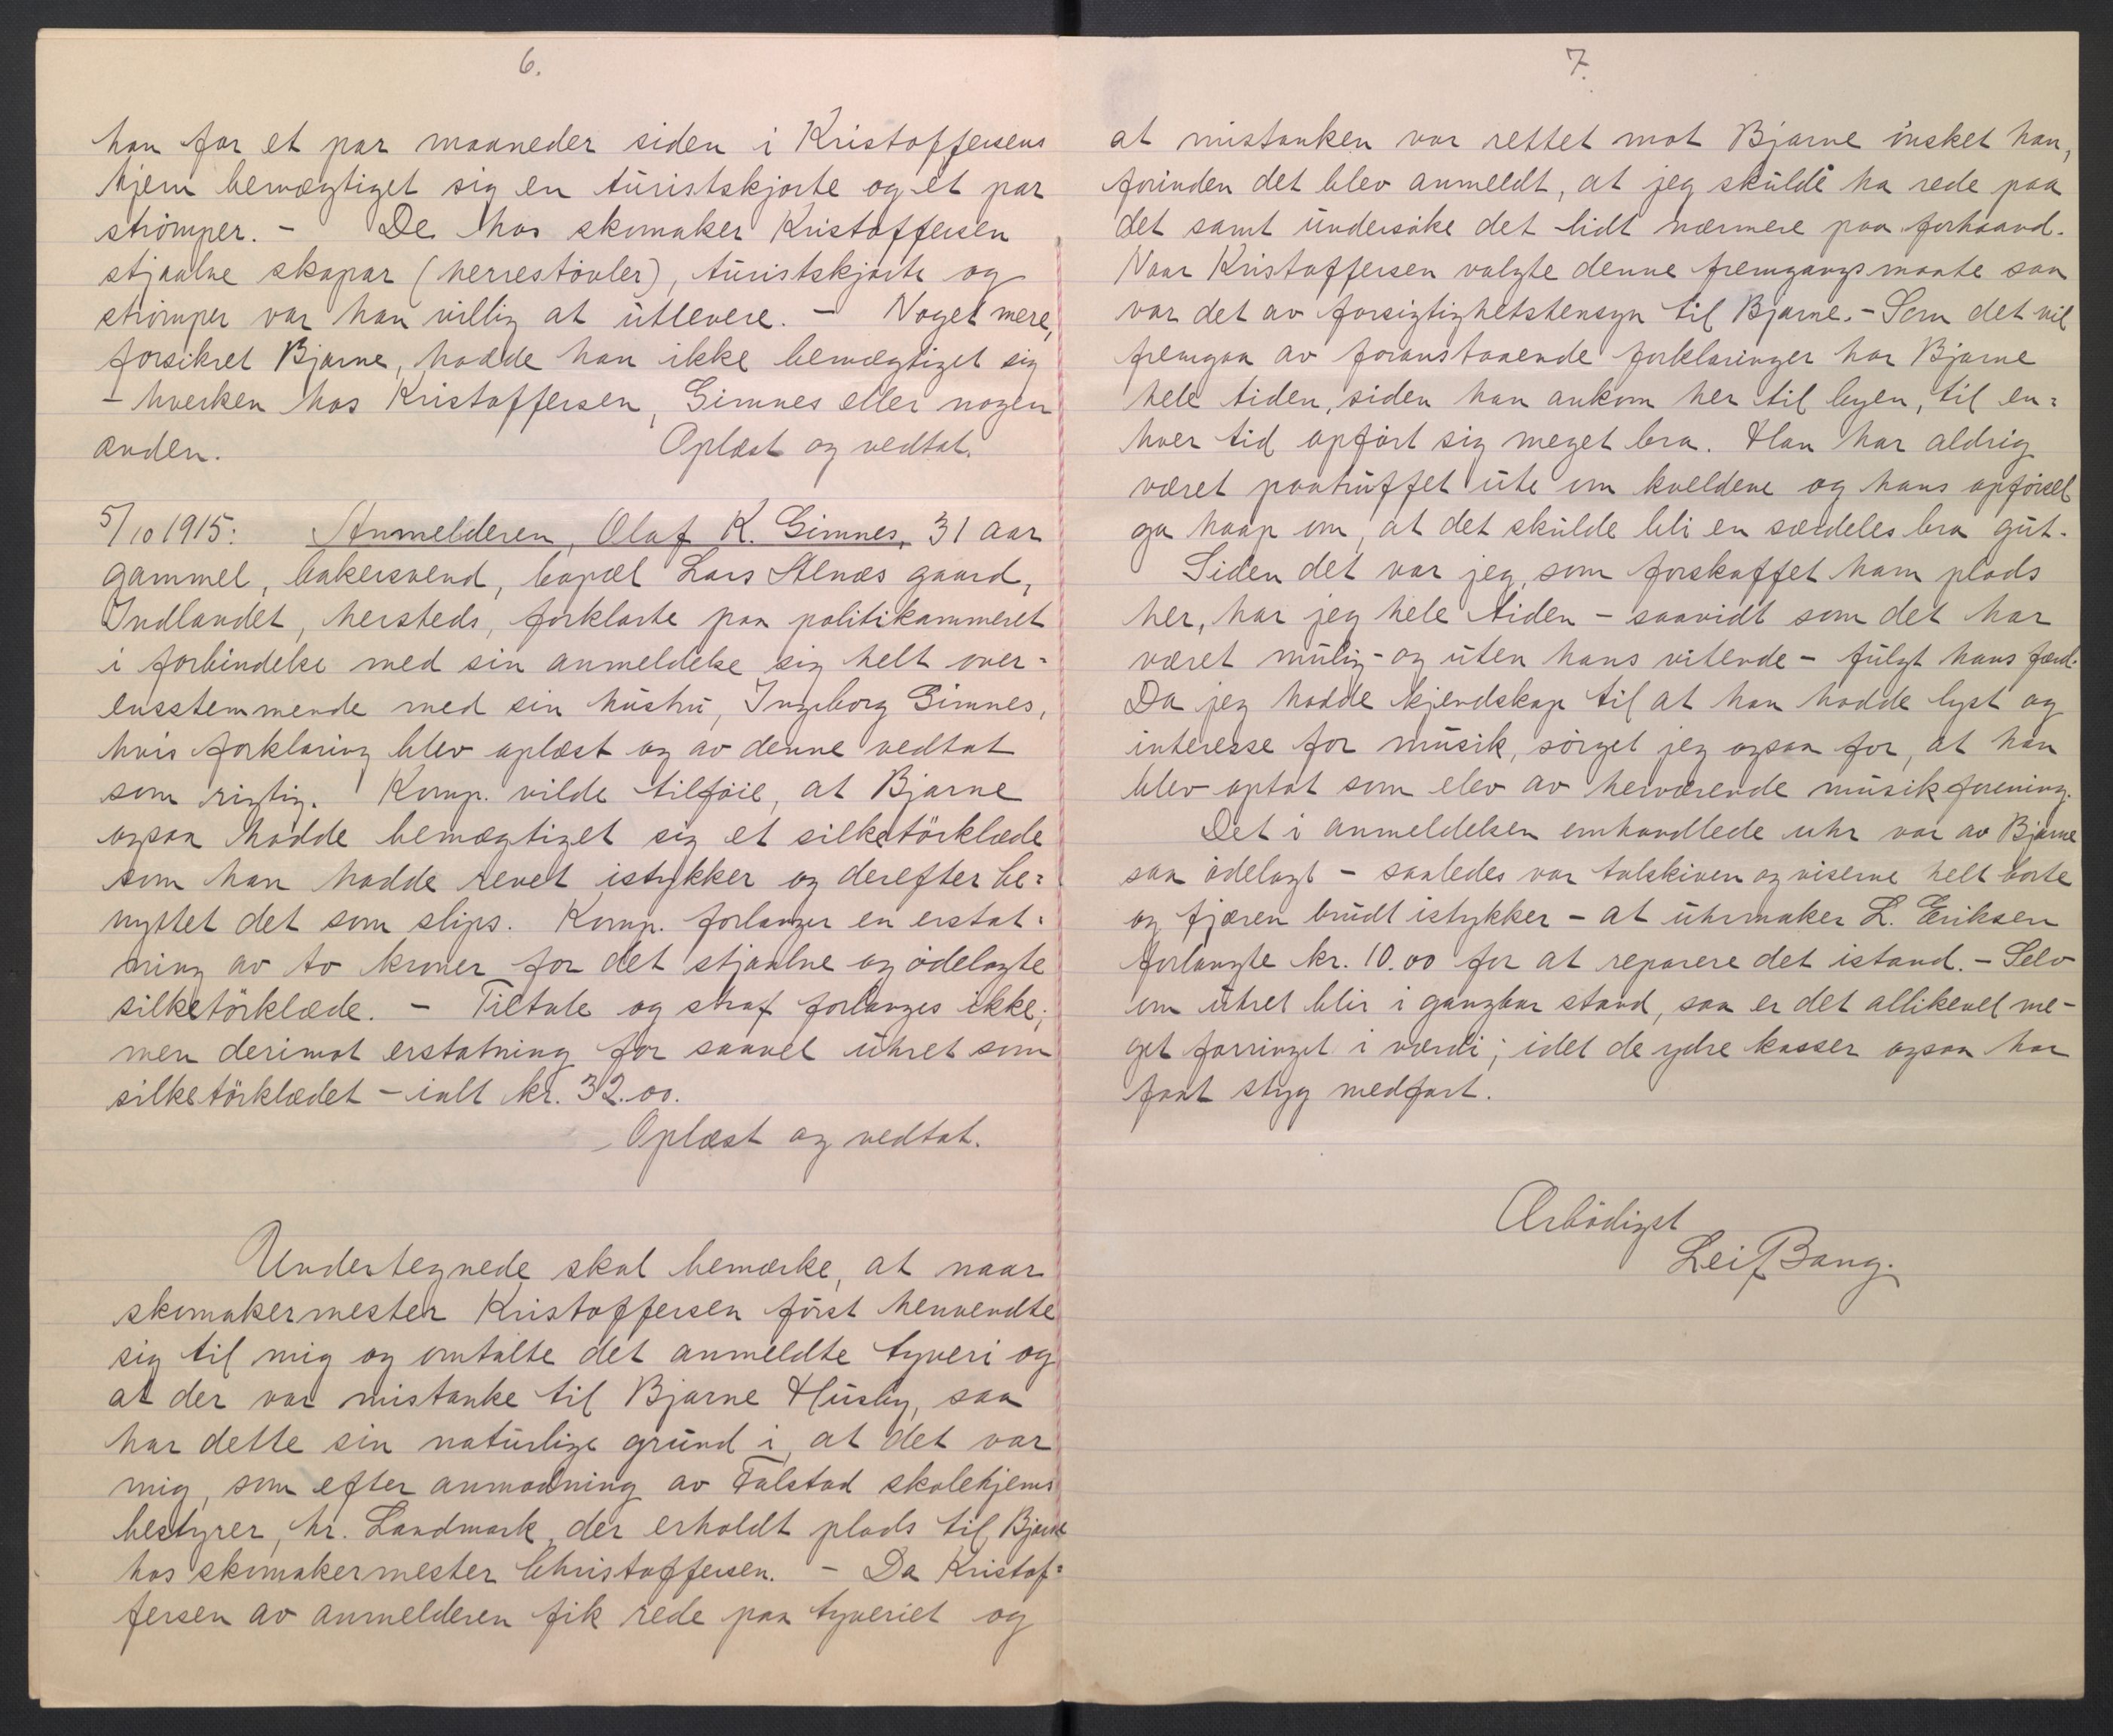 6.
han for et par maaneder siden i Kristoffersens
hjem bemægtiget sig en turistskjorte og et par
strömper. - De hos skomaker Kristoffersen
stjaalne skopar (herrestövler), turistskjorte og
strömper var han villig at utlevere. - Noget mere,
forsikret Bjarne, hadde han ikke bemægtiget sig
- hverken hos Kristoffersen, Gimnes eller nogen
anden. Oplæst og vedtat.
5/10 1915: Anmelderen, Olaf K. Gimnes, 31 aar
gammel, bakersvend, bopæl Lars Alnæs gaard,
Indlandet, hersteds, forklarte paa politikammeret
i forbindelse med sin anmeldelse sig helt over=
ensstemmende med sin hustru, Ingeborg Gimnes,
hvis forklaring blev oplæst og av denne vedtat
som rigtig. Komp. vilde tilföie, at Bjarne
ogsaa hadde bemægtiget sig et silketörklæde
som han hadde revet istykker og derefter be=
nyttet det som slips. Komp. forlanger en erstat=
ning av to kroner for det stjaalne og ödelagte
silketörklæde. - Tiltale og straf forlanges ikke;
men derimot erstatning for saavel uhret som
silketörklædet - ialt kr. 32.00.
Oplæst og vedtat.
Undertegnede skal bemærke, at naar
skomakermester Kristoffersen först henvendte
sig til mig og omtalte det anmeldte tyveri og
at der var mistanke til Bjarne Husby, saa
har dette sin naturlige grund i, at det var
mig, som efter anmodning av Falstad skolehjems
bestyrer, hr. Landmark, der erholdt plads til Bjarne
hos skomakermester Christoffersen. - Da Kristof=
fersen av anmelderen fik rede paa tyveriet og
7.
at mistanken var rettet mot Bjarne önsket han,
forinden det blev anmeldt, at jeg skulde ha rede paa
det samt undersöke det lidt nærmere paa forhaand.
Naar Kristoffersen valgte denne fremgangsmaate saa
var det av forsigtighetshensyn til Bjarne. - Som det vil
fremgaa av foranstaaende forklaringer har Bjarne
hele tiden, siden han ankom her til byen, til en=
hver tid opfört sig meget bra. Han har aldrig
været paatruffet ute om kveldene og hans opförsel
ga haap om, at det skulde bli en særdeles bra gut.
Siden det var jeg, som forskaffet ham plads
her, har jeg hele tiden - saavidt som det har
været mulig - og uten hans vitende - fulgt hans færd.
Da jeg hadde kjendskap til at han hadde lyst og
interesse for musik, sörget jeg ogsaa for, at han
blev optat som elev av herværende musikforening.
Det i anmeldelsen omhandlede uhr var av Bjarne
saa ödelagt - saaledes var talskiven og viserne helt borte
og fjæren brudt istykker - at uhrmaker L. Eriksen
forlangte kr. 10.00 for at reparere det istand. - Selv
om uhret blir i gangbar stand, saa er det allikevel me-
get forringet i værdi; idet de ydre kasser ogsaa har
faat styg medfart.
Ærbödigst
Leif Bang.